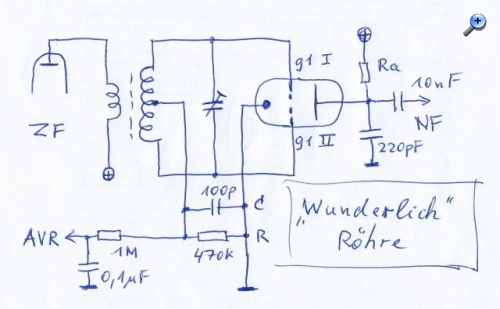 g1 I
Ra
10nF
NF
ZF
g1 II
220pF
100p
C
AVR
1M
470k
R
0,1µF
„Wunderlich"
Röhre